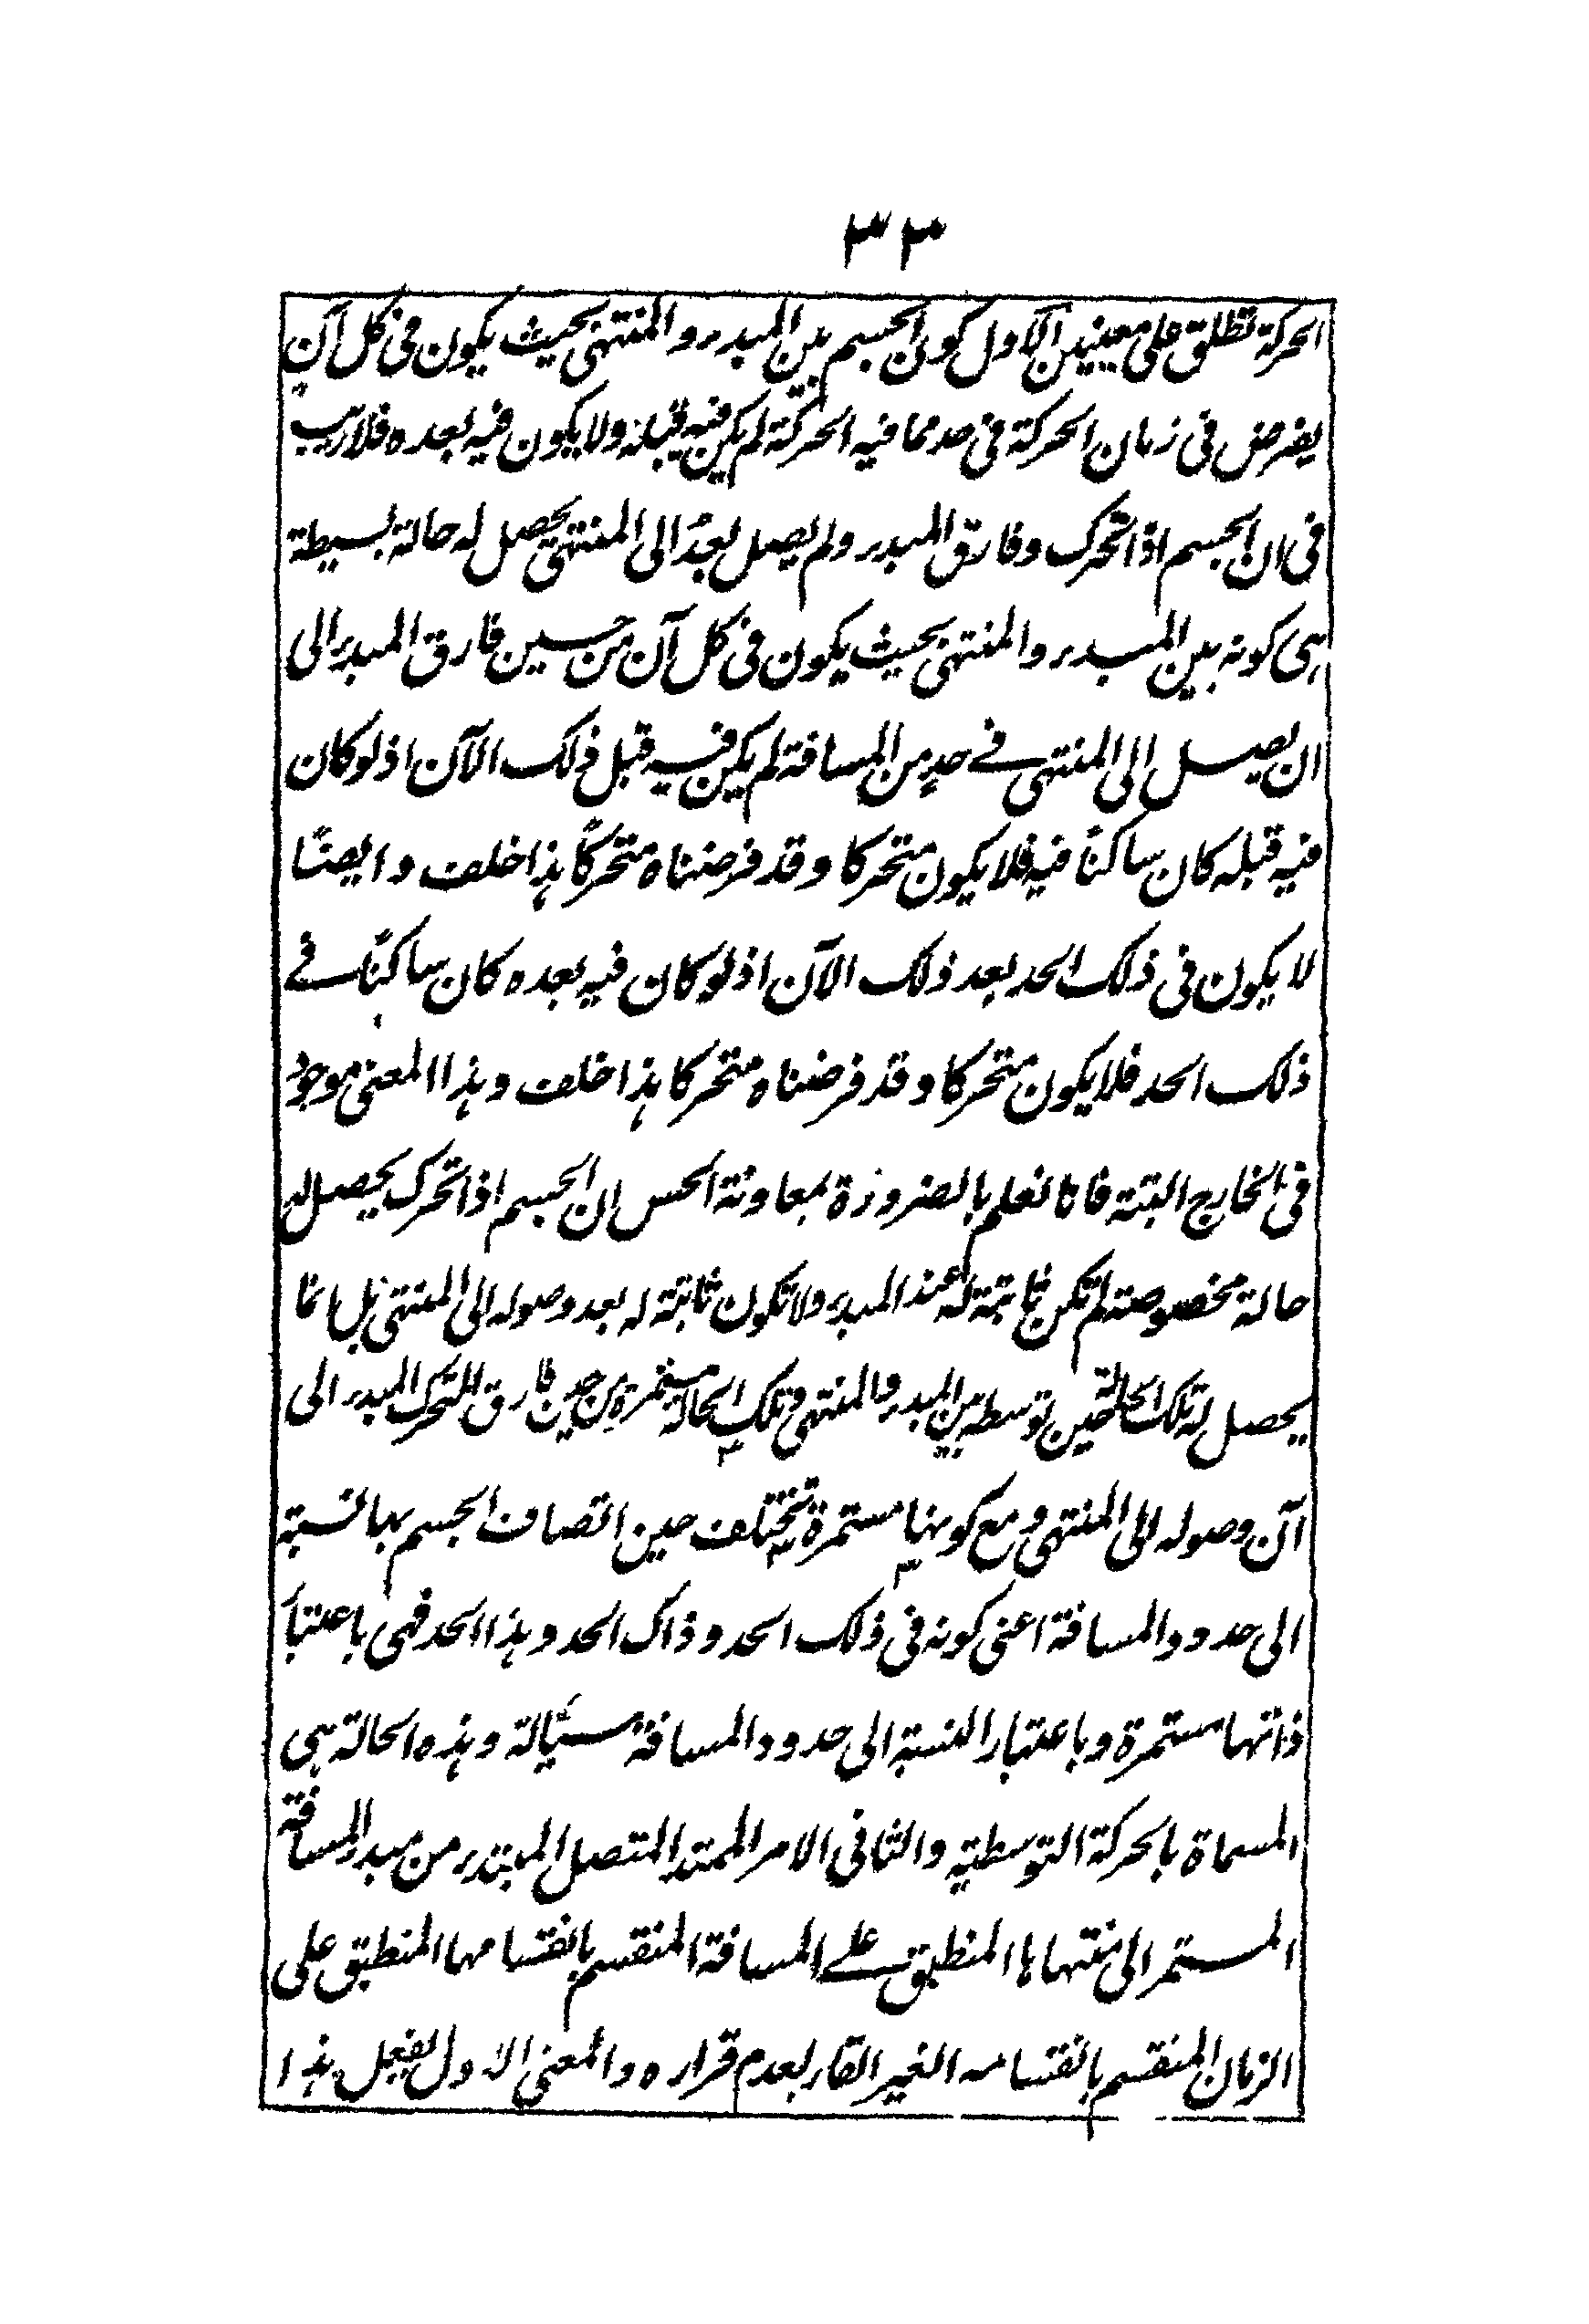 ٣٣
الحركة تطلق على معنيين الاول كون الجسم بين المبدء والمنتهى بحيث يكون فى كل آنٍ
يفرض فى زمان الحركة فى حد مما فيه الحركة لم يكن فيه قبله ولا يكون فيه بعده فلا ريب
فى ان الجسم اذا تحرك وفارق المبدء ولم يصل بعدُ الى المنتهى يحصل له حالة بسيطة
هى كونه بين المبدء والمنتهى بحيث يكون فى كل آن من حين فارق المبدء الى
ان يصل الى المنتهى فے حدٍ من المسافة لم يكن فيه قبل ذلك الآن اذ لو كان
فيه قبله كان ساكناً فيه فلا يكون متحركا وقد فرضناه متحركاً هذا خلف وايضًا
لا يكون فى ذلك الحد بعد ذلك الآن اذ لو كان فيه بعده كان ساكنًا فے
ذلك الحد فلا يكون متحركا وقد فرضناه متحركا هذا خلف وهذا المعنى موجود
فى الخارج البتة فانا نعلم بالضرورة بمعاونة الحس ان الجسم اذا تحرك يحصل له
حالة مخصوصة لم تكن ثابتة له عند المبدء ولا تكون ثابتة له بعد وصوله الى المنتهى بل انما
يحصل له تلك الحالة حين توسطه بين المبدء والمنتهى وتلك الحالة مستمرة من حين فارق المتحرك المبدء الى
آن وصوله الى المنتهى ومع كونها مستمرة تختلف حين اتصاف الجسم بها نسبته
الى حدود المسافة اعنى كونه فى ذلك الحد وذاك الحد وهذا الحد فهى باعتبار
ذاتها مستمرة وباعتبار النسبة الى حدود المسافة سيّالة وهذه الحالة هى
المسماة بالحركة التوسطية والثانى الامر الممتد المتصل المبتدء من مبدء المسافة
المستمر الى منتهاها المنطبق علے المسافة المنقسم بانقسامها المنطبق على
الزمان المنقسم بانقسامه الغير القار بعدم قراره والمعنى الاول يفعل هذا